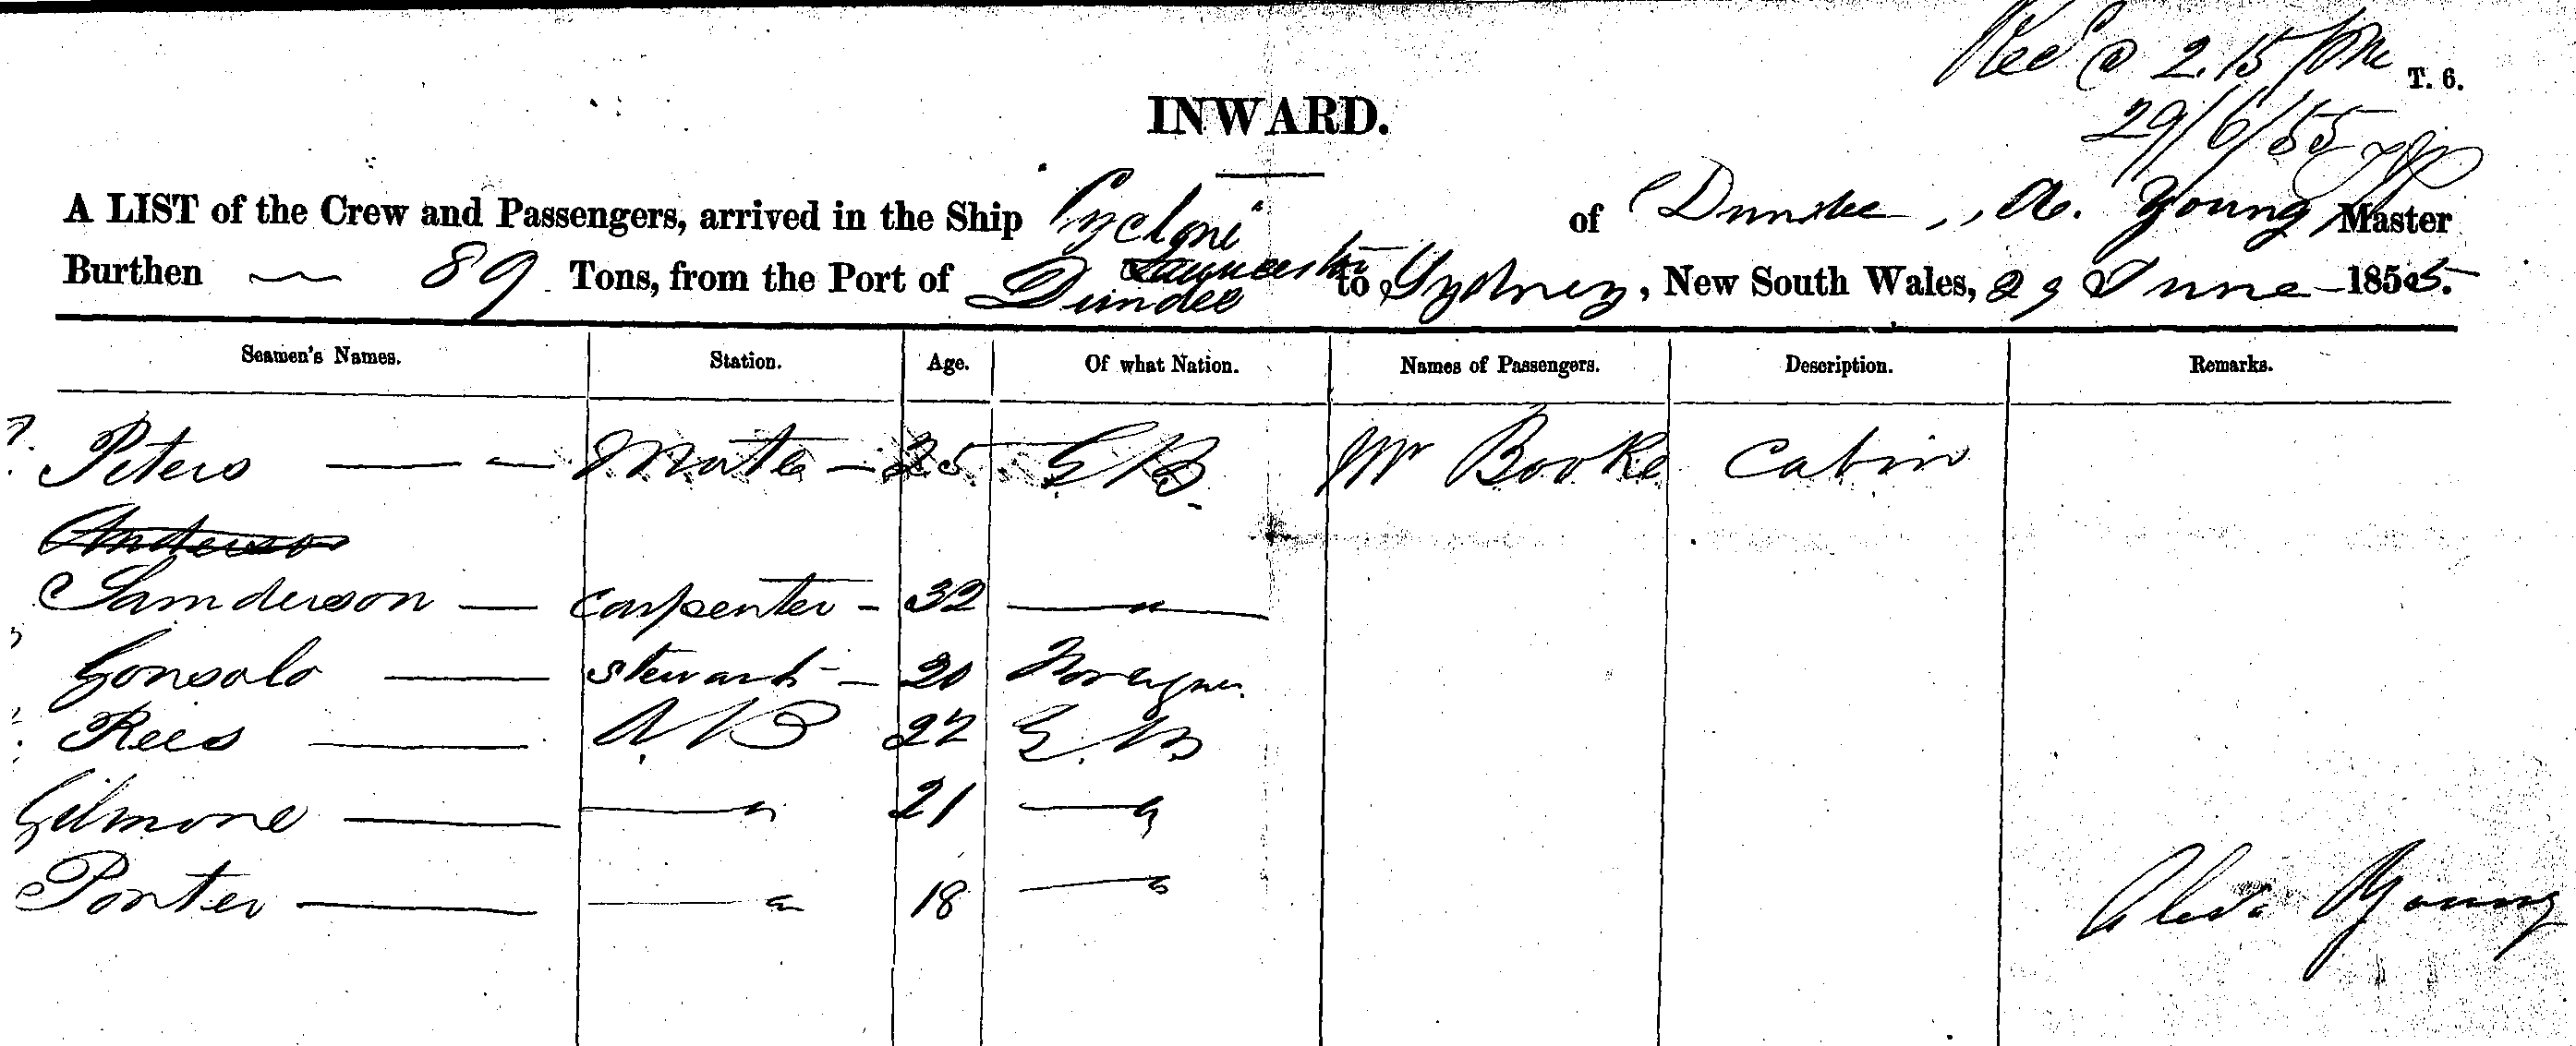 Recd @ 2.15 pm
T. 6.
29/6/55
INWARD.
A LIST of the Crew and Passengers, arrived in the Ship Cyclone of Dundee, A. Young Master
Launceston
Burthen 89 Tons, from the Port of Dundee to Sydney, New South Wales, 29 June 1855.
Seamen's Names. Station. Age. Of what Nation. Names of Passengers. Description. Remarks.
Peters — — Mate — 25 G B. Mr Booke Cabin
Anderso
Sanderson — carpenter — 32 — " —
Gonsalo — steward — 20
Rees — A. B 27 G. B
Gilmore — — " 21 — "
Porter — — " 18 — "
Alexr Young